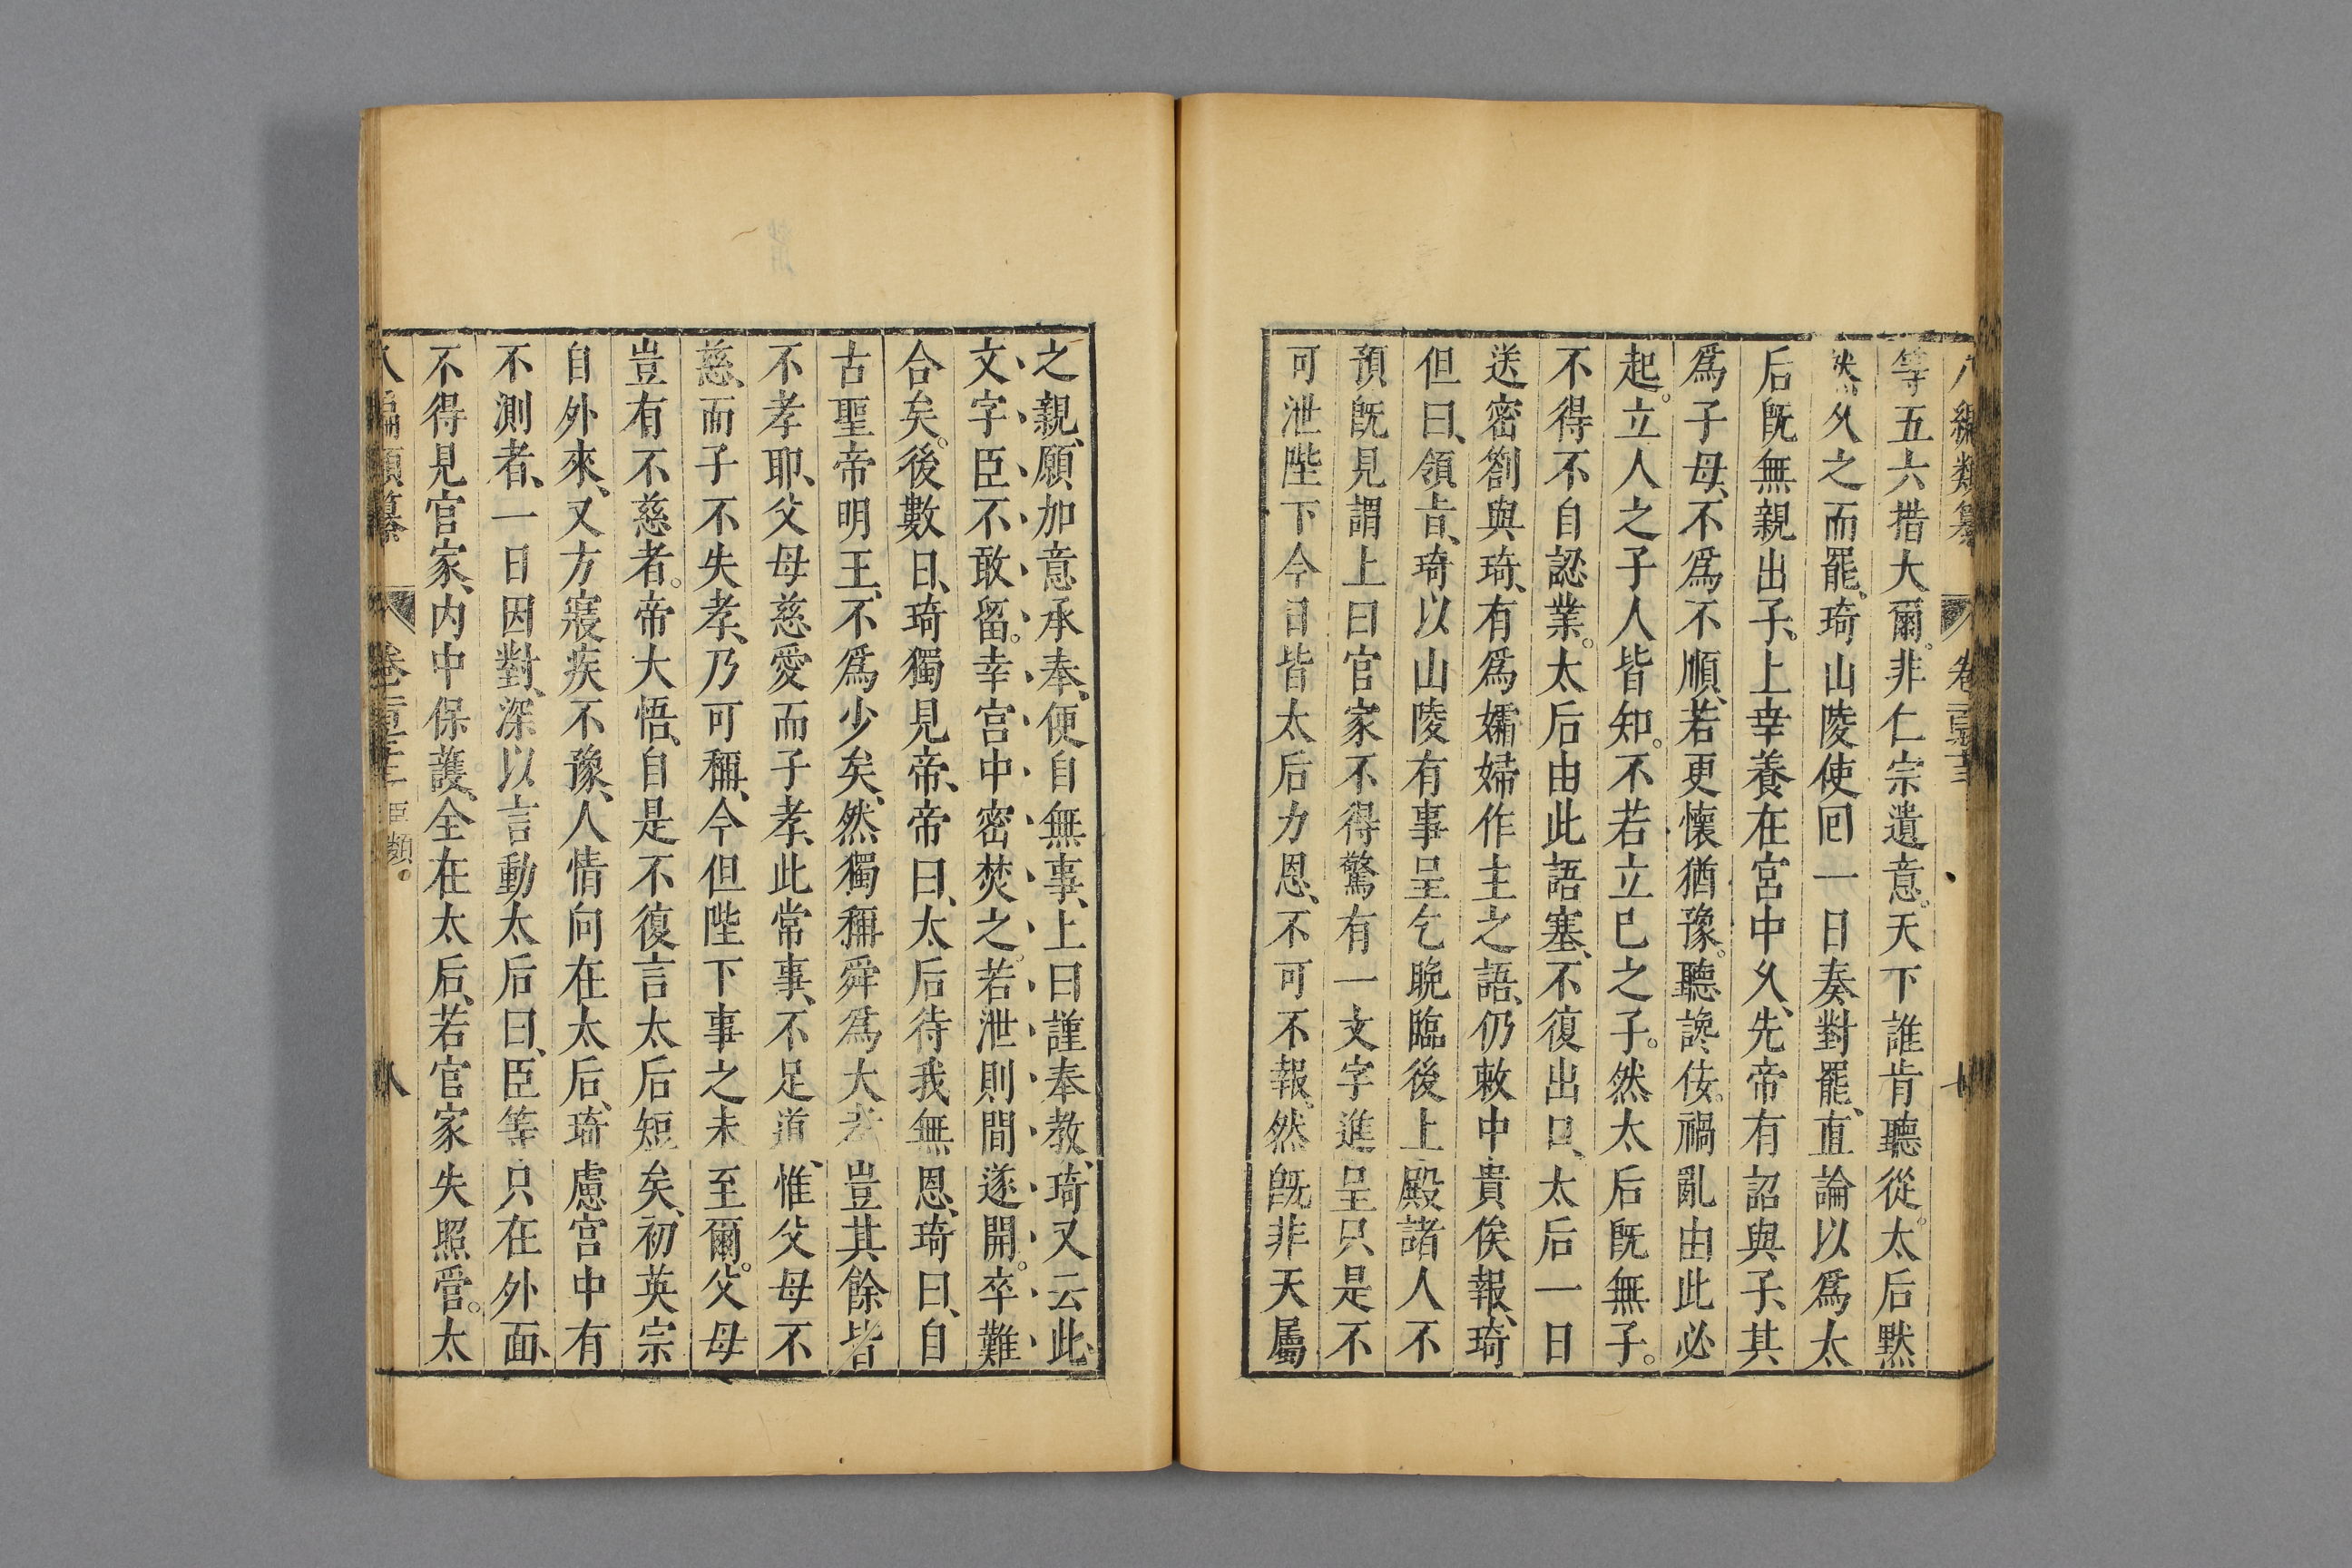 八編類纂 卷一百二十三
等五六措大爾。非仁宗遺意。天下誰肯聽從。太后黙
然久之而罷、琦山陵使回一日奏對罷、直論以爲太
后旣無親出子、上幸養在宮中久、先帝有詔與子、其
爲子母、不爲不順、若更懷猶豫。聽讒佞。禍亂由此必
起。立人之子人皆知。不若立已之子。然太后旣無子。
不得不自認業。太后由此語塞、不復出口、太后一日
送密劄與琦、有爲孀婦作主之語、仍敕中貴俟報、琦
但曰、領㫖、琦以山陵有事呈乞晚臨後上殿諸人不
預旣見謂上曰官家不得驚有一文字進呈只是不
可泄陛下今日皆太后力恩、不可不報。然旣非天屬
之親、願加意承奉、便自無事、上曰謹奉教、琦又云此
文字臣不敢留。幸宮中密焚之。若泄則間遂開。卒難
合矣。後數日、琦獨見帝、帝曰、太后待我無恩、琦曰、自
古聖帝明王、不爲少矣、然獨稱舜爲大孝豈其餘皆
不孝耶、父母慈愛而子孝、此常事、不足道、惟父母不
慈、而子不失孝、乃可稱、今但陛下事之未至爾。父母
豈有不慈者。帝大悟、自是不復言太后短矣、初英宗
自外來、又方寢疾不豫、人情向在太后、琦慮宮中有
不測者、一日因對、深以言動太后曰、臣等只在外面、
不得見官家、内中保護、全在太后、若官家失照管。太
八編類纂 卷一百二十三 臣類。 八